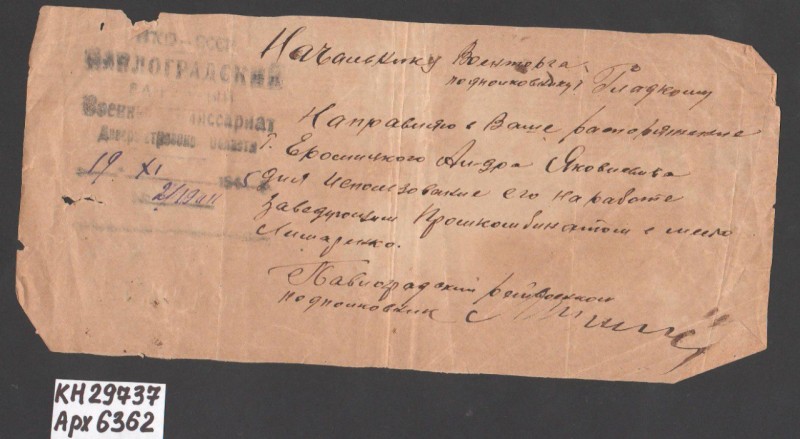 НКО-СССР
ПАВЛОГРАДСКИЙ
Военный Комиссариат
Днепропетровск области
19 XI 1945
Начальнику Военторга
подполковнику Гладкому
Направляю в Ваше распоряжение
т. Яковлевича
для использование его на работе
Заведующим Промкомбинатом в место
Павлоградский райвоенком
подполковник
КН 29737
Арх 6362